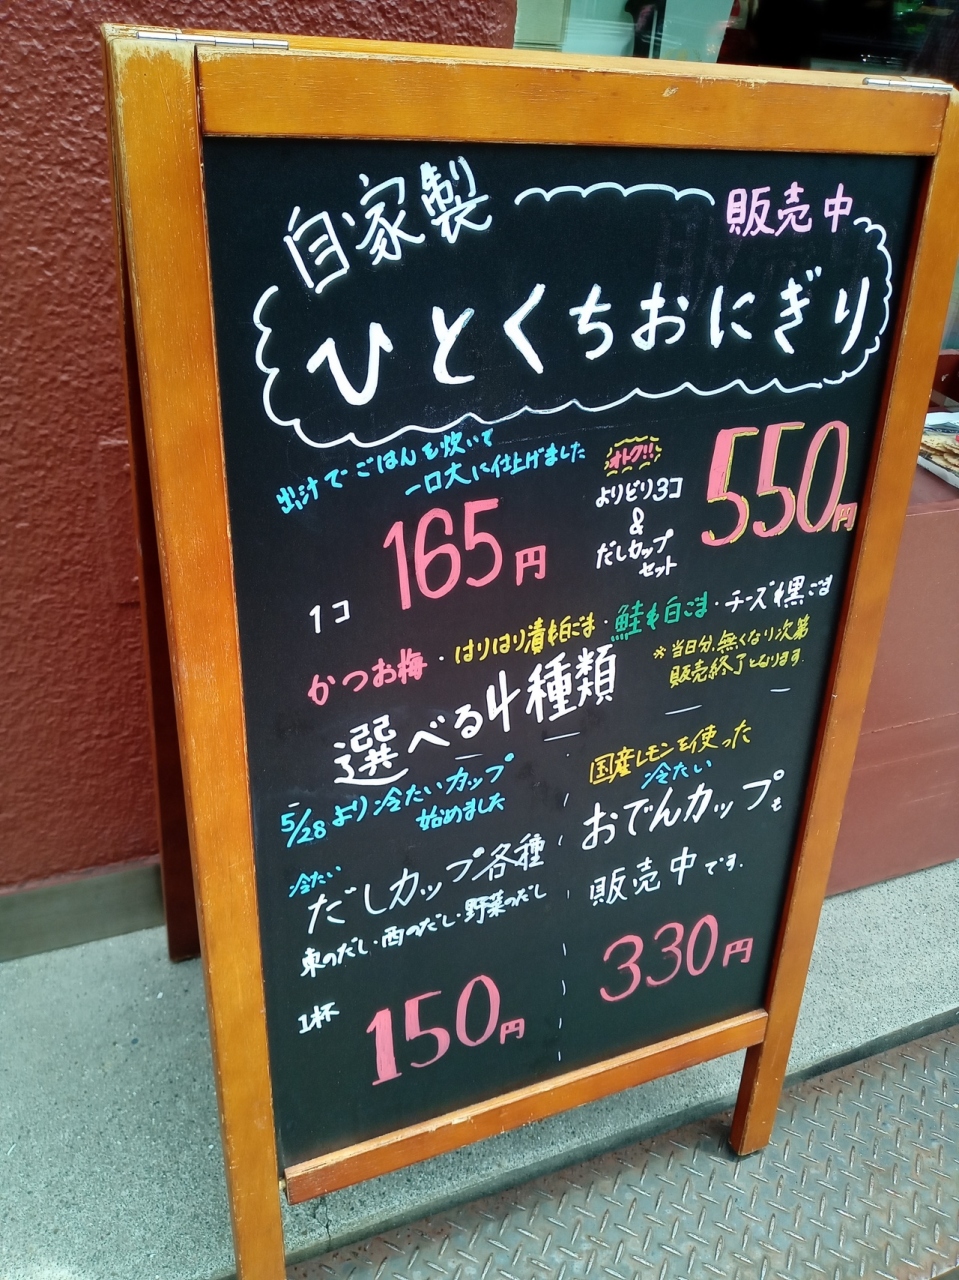 自家製
販売中
ひとくちおにぎり
出汁でごはんを炊いて
一口大に仕上げました
1コ 165円
オトク!!
よりどり3コ
&
だしカップ
セット
550円
かつお梅・はりはり漬を白ごま・鮭を白ごま・チーズを黒ごま
選べる4種類
※当日分、無くなり次第
販売終了となります。
5/28より冷たいカップ
始めました
冷たい
だしカップ各種
東のだし・西のだし・野菜のだし
1杯 150円
国産レモンを使った
冷たい
おでんカップも
販売中です.
330円